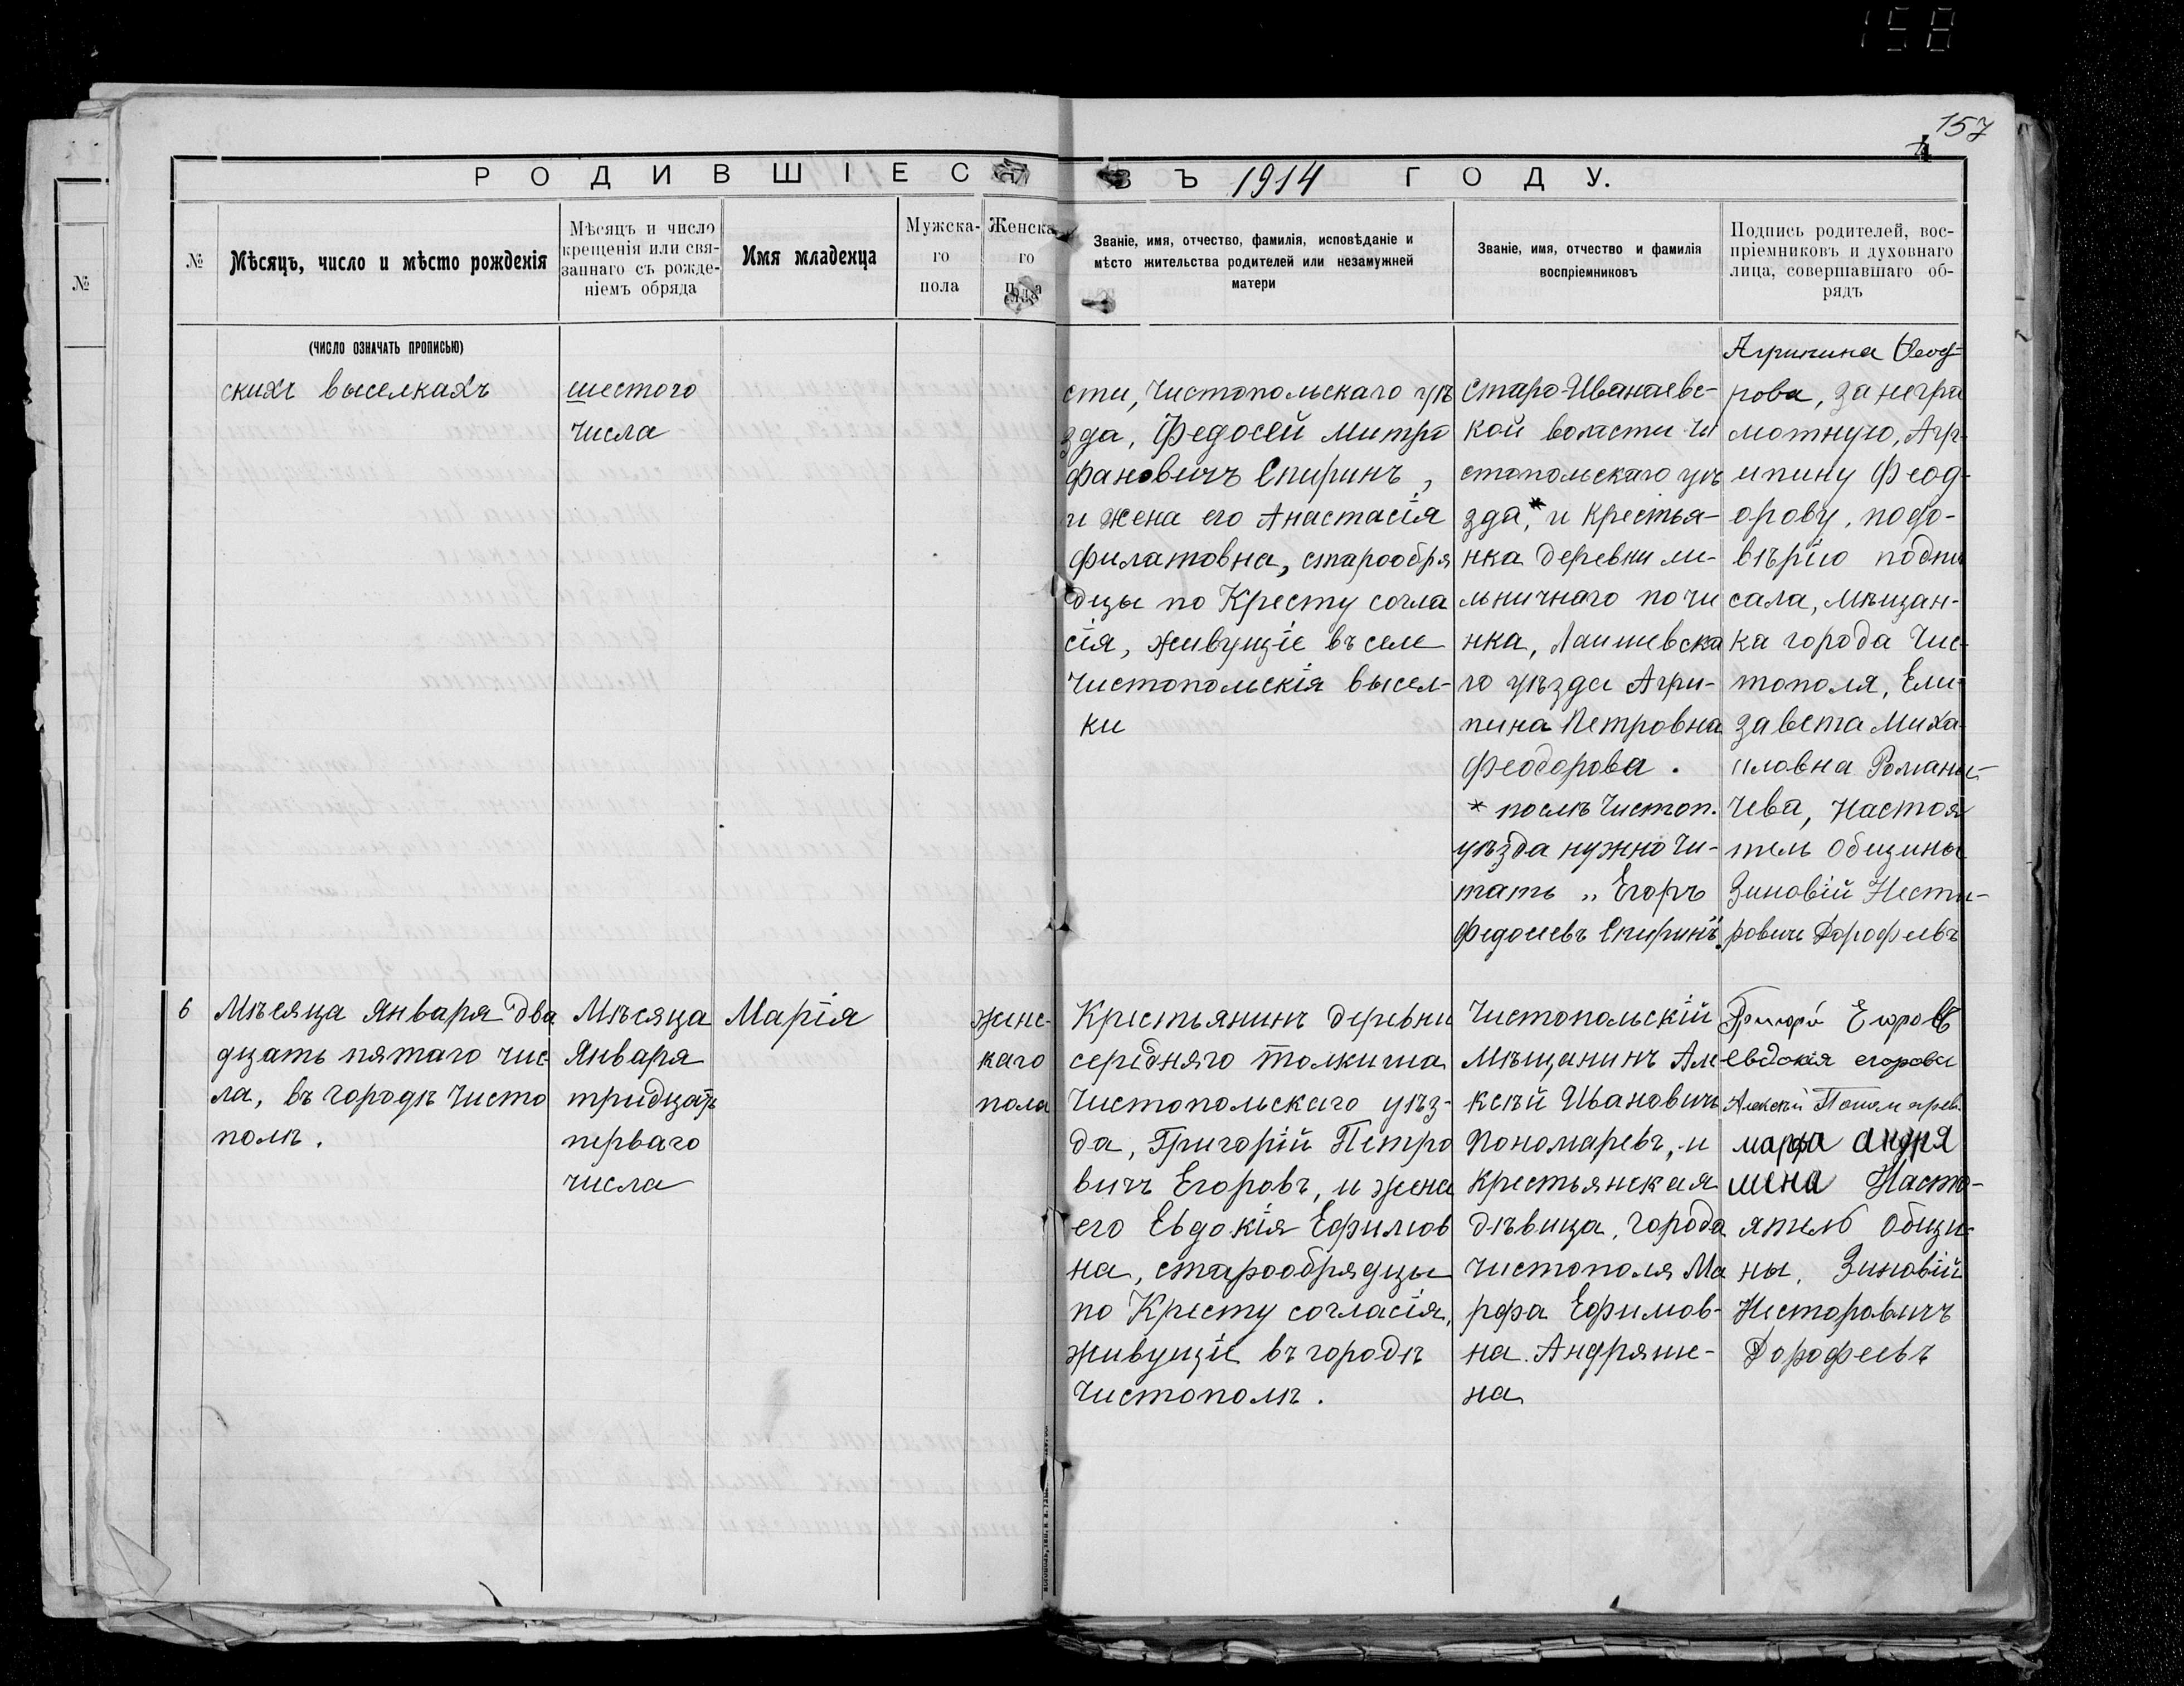 158
157
4
РОДИВШІЕСЯ ВЪ 1914 ГОДУ.
№
№
Мѣсяцъ, число и мѣсто рожденія
Мѣсяцъ и число
крещенія или свя-
заннаго съ рожде-
ніемъ обряда
Имя младенца
Мужска-
го
пола
Женска
го
пола
Званіе, имя, отчество, фамилія, исповѣданіе и
мѣсто жительства родителей или незамужней
матери
Званіе, имя, отчество и фамилія
воспріемниковъ
Подпись родителей, вос-
пріемниковъ и духовнаго
лица, совершавшаго об-
рядъ
(ЧИСЛО ОЗНАЧАТЬ ПРОПИСЬЮ)
скихъ выселкахъ
шестого
числа
сти, Чистопольскаго уѣ
зда, Федосей Митро
фановичъ Спиринъ,
и жена его Анастасія
Филатовна, старообря
дцы по Кресту согла
сія, живущіе въ селе
Чистопольскія высел-
ки
Старо-Иванаевс-
кой волости Чи
стопольскаго уѣ
зда,* и крестья-
нка деревни ме-
льничнаго почи
нка, Лаишевска
го уѣзда Агри-
пина Петровна
Феодорова.
* послѣ Чистоп.
уѣзда нужно чи-
тать „Егоръ
Федосеевъ Спиринъ.
Агрипина Феод-
рова, за негра
мотную, Агр-
ипину Феод-
орову, подо-
вѣрію подпи
сала, мѣщан-
ка города Чис-
тополя, Ели-
завета Миха-
иловна Романы-
чева, Настоя
тель Общины
Зиновій Несто-
ровичъ Дорофеевъ
6
Мѣсяца Января два
дцать пятаго чис
ла, въ городѣ Чисто
полѣ.
Мѣсяца
Января
тридцать
перваго
числа
Марія
женс-
каго
пола
Крестьянинъ деревни
середняго толкиша
Чистопольскаго уѣз-
да, Григорій Петро
вичъ Егоровъ, и жена
его Евдокія Ефимов
на, старообрядцы
по Кресту согласія,
живущіе въ городѣ
Чистополѣ.
Чистопольскій
Мѣщанинъ Але
ксѣй Ивановичъ
Пономаревъ, и
Крестьянская
дѣвица, города
Чистополя Ма
рфа Ефимов-
на Андряше-
на
Григорій Егоровъ
Евдокія егорова
Алексѣй Пономарев
марфа андря
шена Насто-
ятель Общи-
ны, Зиновій
Несторовичъ
Дорофеевъ